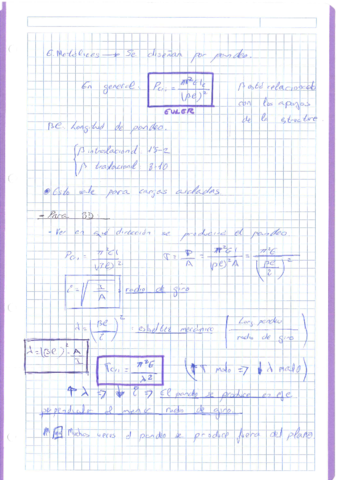 E. Metálicas → Se diseñan por pandeo.
En general: Pcr = π²EI / (βl)²
β está relacionado con los apoyos de la estructura
EULER
βl: Longitud de pandeo.
β intraslacional 1/2-1
β traslacional 1-10
* Esto vale para cargas aisladas
- Para 3D
→ Ver en que dirección se producirá el pandeo
Pcr = π²EI / (βl)²   σ = P/A = π²EI / (βl)²A = π²E / (βl/i)²
i = √(I/A) radio de giro
λ = (βl/i)² = esbeltez mecánica (Long. pandeo / radio de giro)
λ = (βl)² · A/I
σcr = π²E / λ²   (↑σ malo ⇒ ↓λ malo)
↑λ ⇒ ↓i ⇒ El pandeo se produce en eje
perpendicular al menor radio de giro.
el pandeo se produce fuera del plano